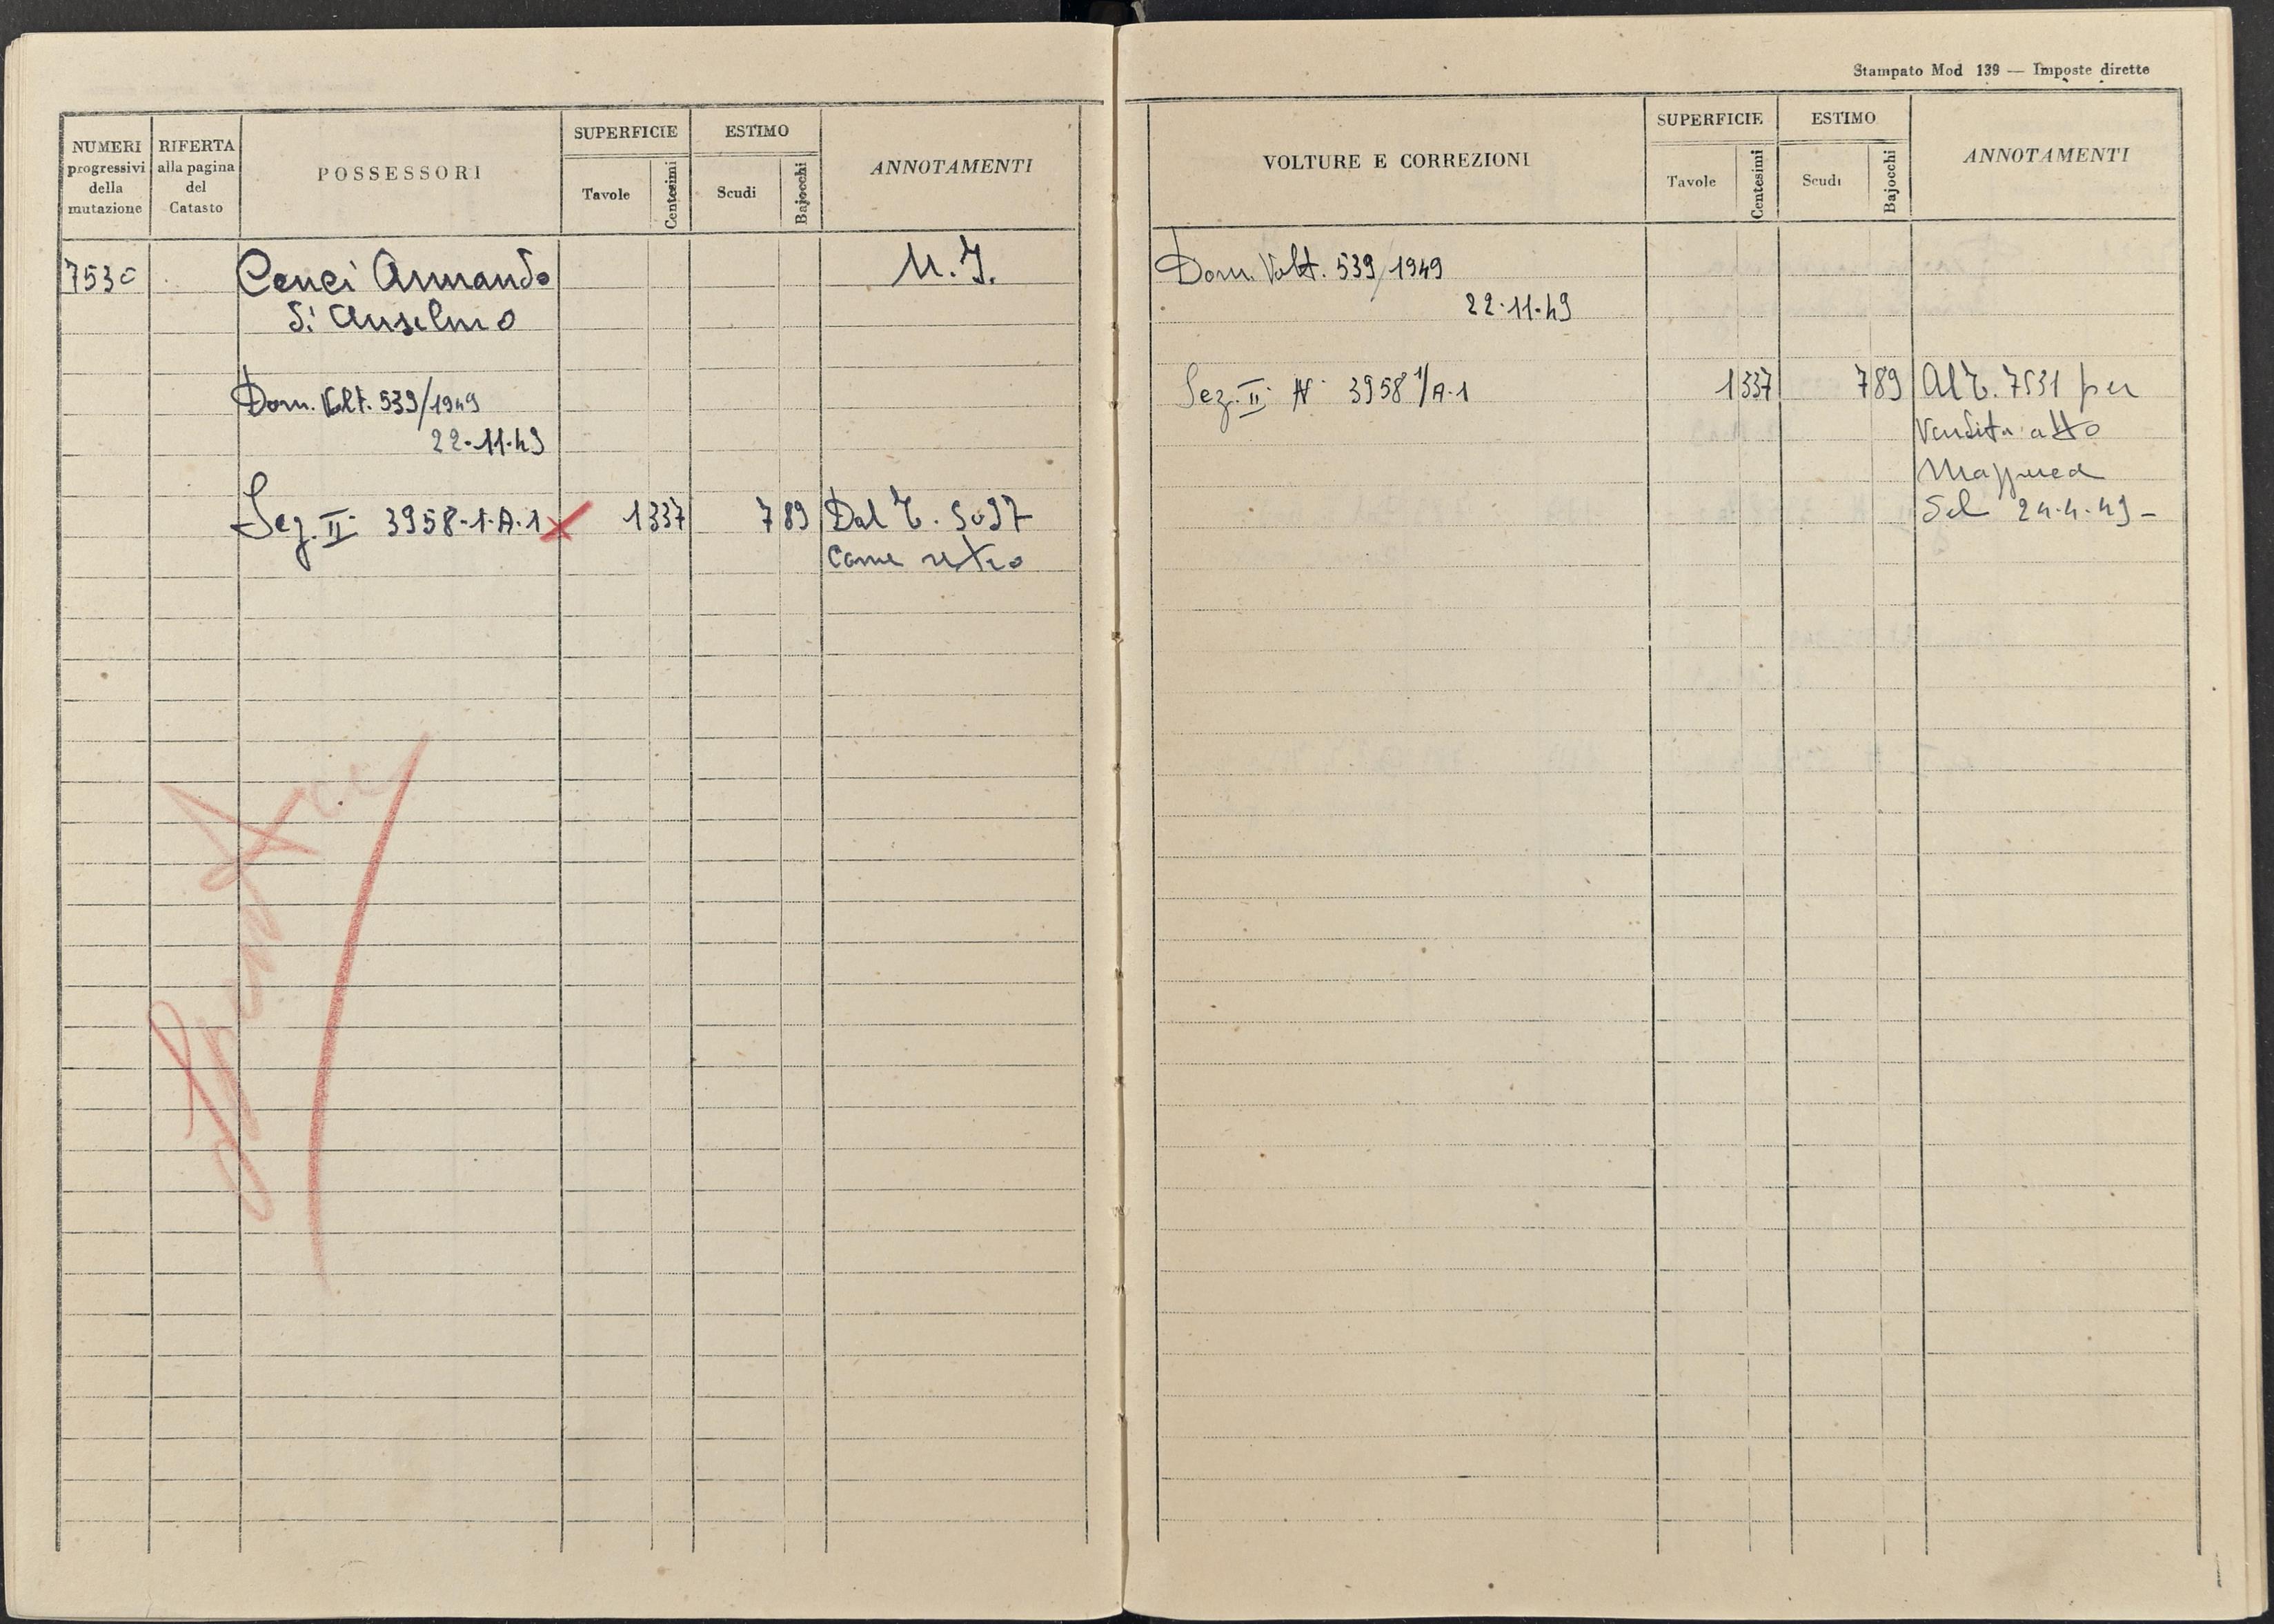 NUMERI
progressivi
della
mutazione
RIFERTA
alla pagina
del
Catasto
POSSESSORI
SUPERFICIE
Tavole
Centesimi
ESTIMO
Scudi
Bajocchi
ANNOTAMENTI
7530
Cenci Armando
M. I.
di Anselmo
Dom. Volt. 539/1949
22-11-49
Sez. II 3958-1-A-1 1337 789 Dal T.
come retro
Spenta
Stampato Mod 139 — Imposte dirette
VOLTURE E CORREZIONI
SUPERFICIE
Tavole
Centesimi
ESTIMO
Scudi
Bajocchi
ANNOTAMENTI
Dom. Volt. 539/1949
22-11-49
Sez. II N. 3958 1/A-1 1337 789 Al T. 7531 per
Vendita atto
del 24-4-49-